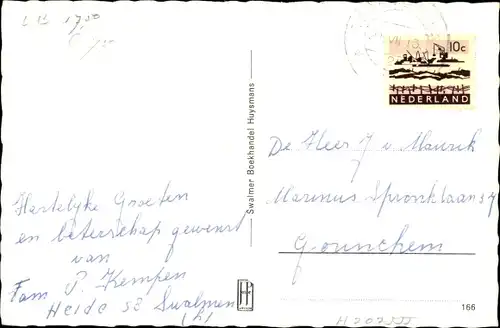 10c
NEDERLAND
Swalmer Boekhandel Huysmans
De Heer J v Mourik
Marinus Spronklaan 57
Gorinchem
Hartelijke Groeten
en beterschap gewenst
van
Fam P. Kempen
Heide 58 Swalmen
(L)
166
H202555